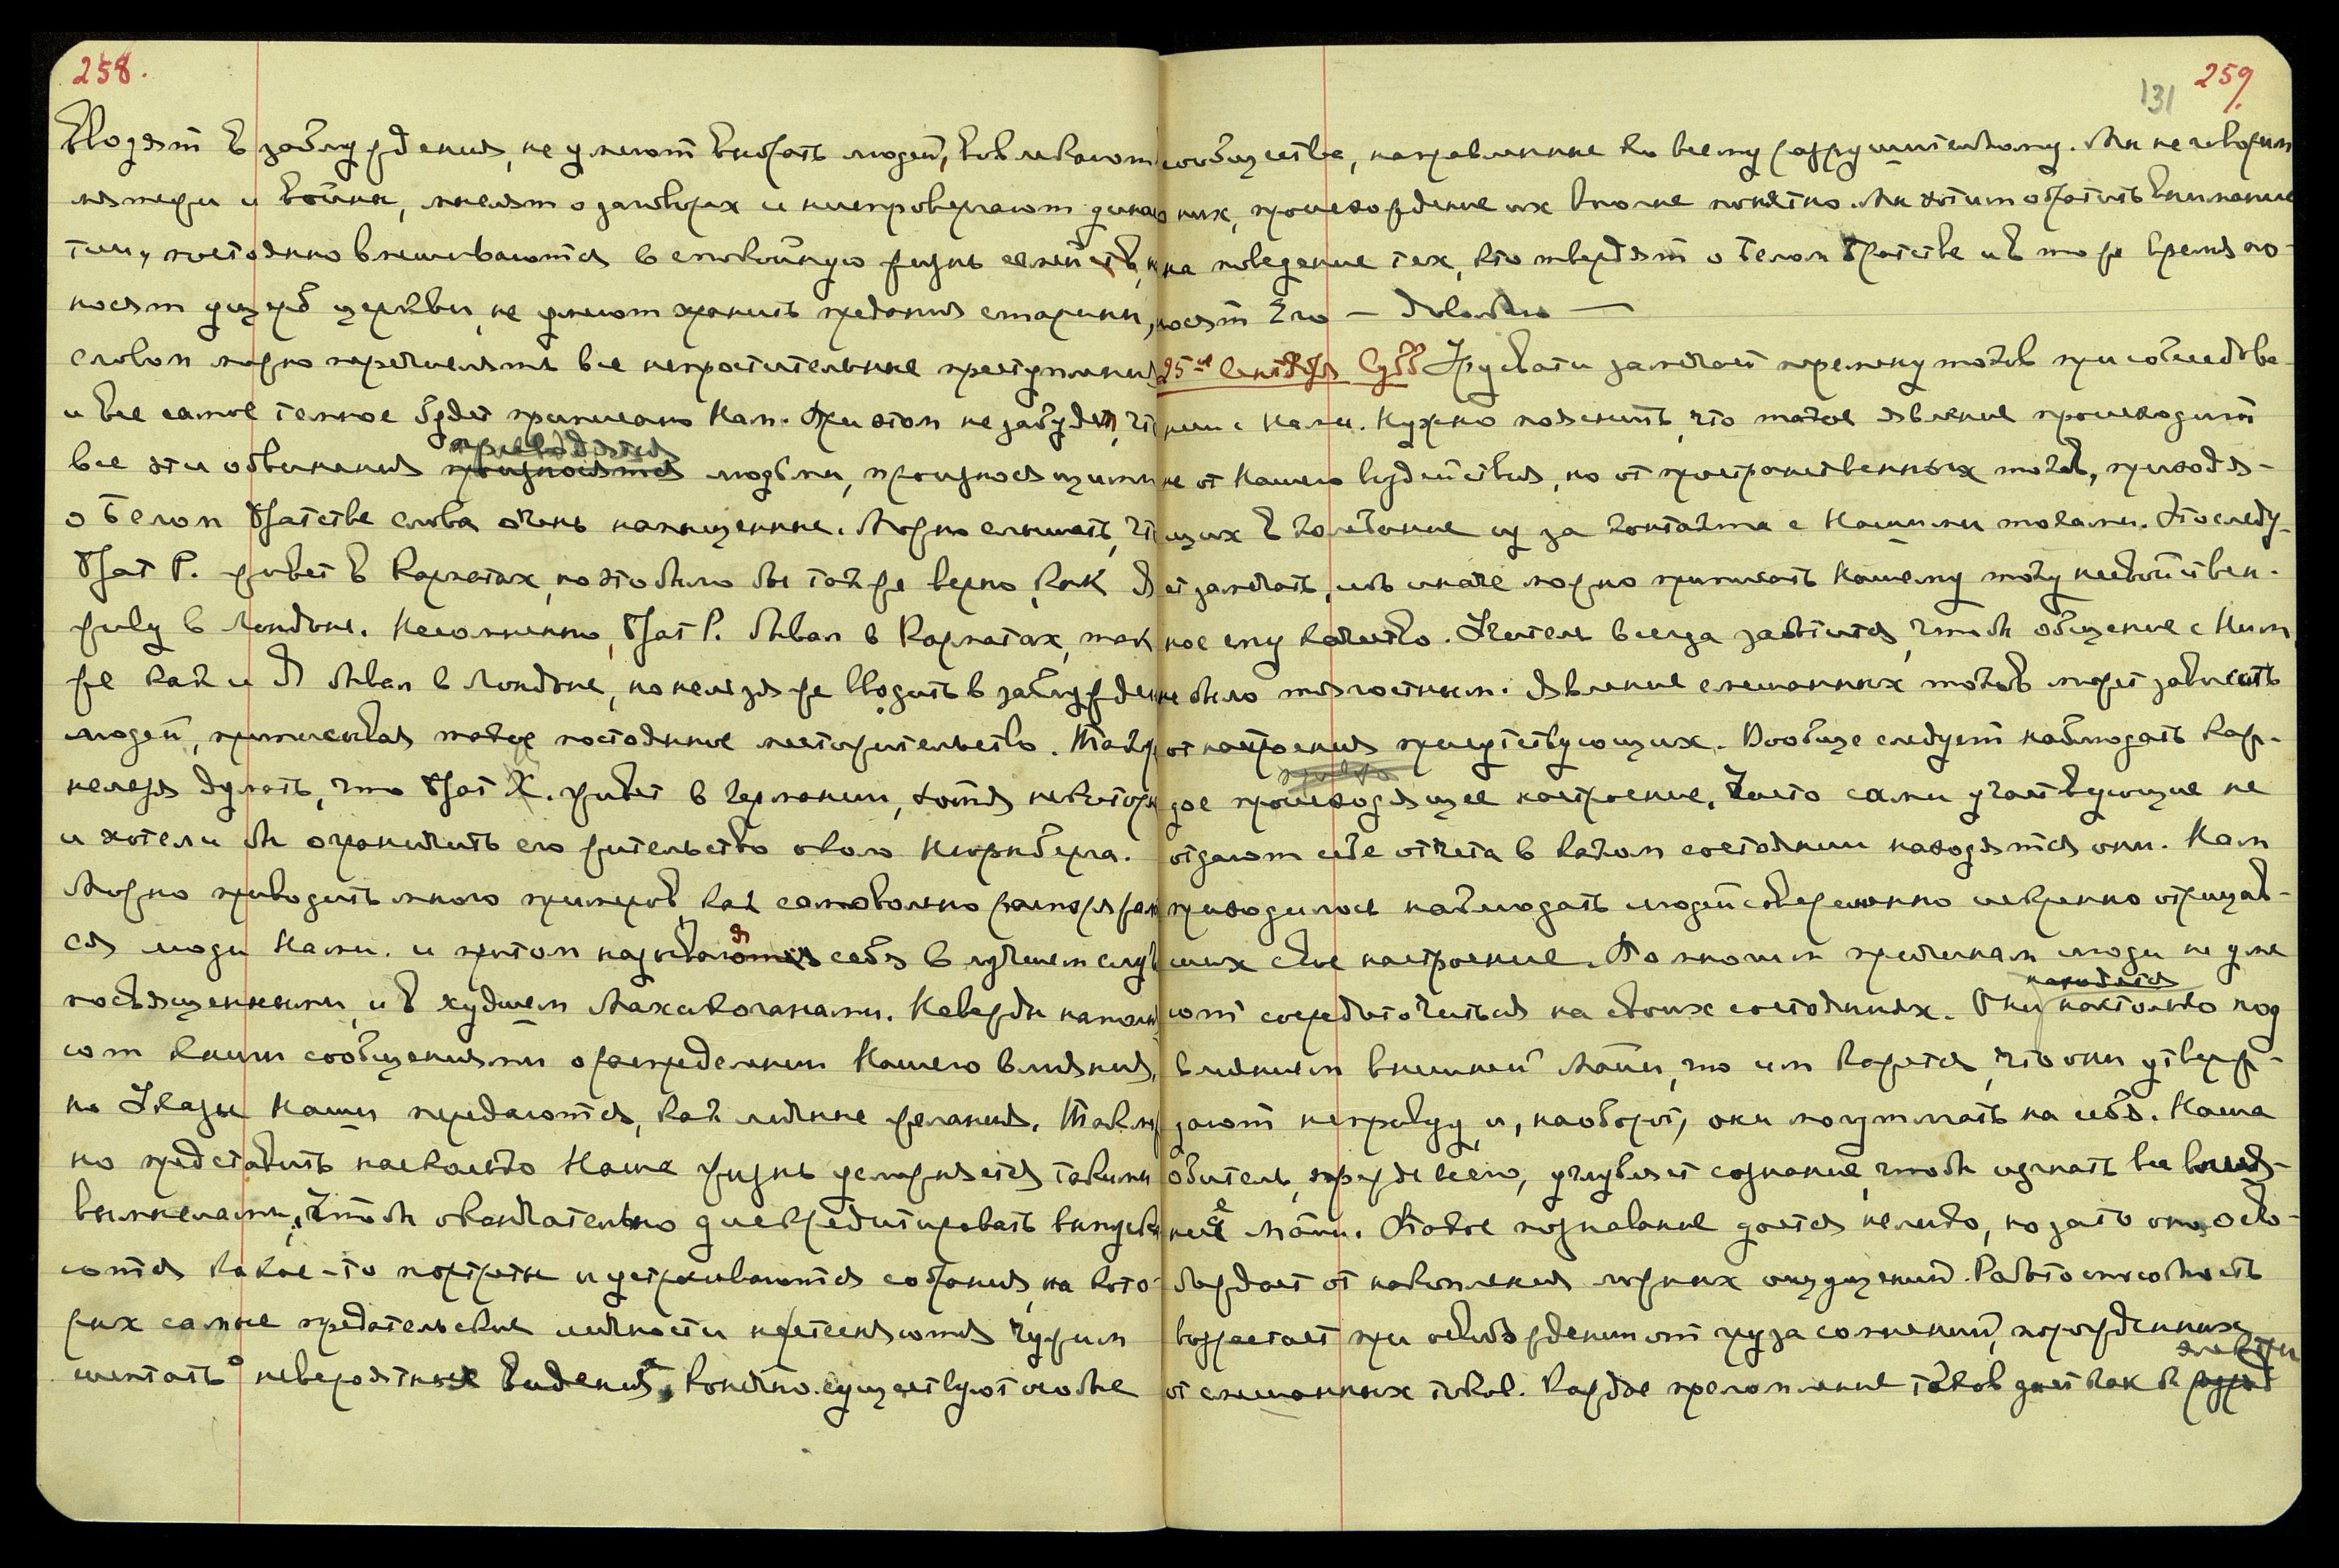 258.
вводят в заблуждения, не умеют выбрать людей, вовлекают
мятежи и войны, мыслят о заговорах и ниспровергают дина
тии, постоянно вмешиваются в спокойную жизнь семейств,
носят ущерб церкви, не умеют хранить предания старины,
словом можно перечислять все непростительные преступлени
и все самое темное будет приписано Нам. При этом не забудем, что
все эти обвинения произносятся приводятся людьми, произносящими
о Белом Братстве слова очень напыщенные. Можно слышать, что
Брат Р. живет в Карпатах, но это было бы так же верно, как Я
живу в Лондоне. Несомненно, Брат Р. бывал в Карпатах, так
же как и Я бывал в Лондоне, но нельзя же вводить в заблужден
людей, приписывая такое постоянное местожительство. Также
нельзя думать, что Брат Х. живет в Германии, хотя некоторы
и хотели бы ограничить его жительство около Нюрнберга.
Можно приводить много примеров, как самовольно распоряжаю
ся люди Нами. и притом называя себя в лучшем случ
посвященными, и в худшем Махакоганами. Невежды наполня
ют книги сообщениями о распределении Нашего влияния,
но Указы Наши передаются, как личные желания. Так мож
но представить насколько Наша жизнь усложняется такими
вымыслами. Чтобы окончательно дискредитировать выпуска
ются какое-то портреты и устраиваются собрания, на кото-
рых самые предательские личности не стесняются чужим
шептать о невероятных видениях. Конечно существуют особые
131
259.
сообщества, направленные ко всему разрушительному. Мы не говорим
о них, происхождение их вполне понятно. Мы хотим обратить внимание
на поведение тех, кто твердят о Белом Братстве и в то же время по-
носят Его — Довольно —
25-е Сентября Субб Урусвати замечает перемену токов при собеседова-
нии с Нами. Нужно пояснить, что такое явление происходит
не от Нашего воздействия, но от пространственных токов, приходя-
щих в колебание из за контакта с Нашими токами. Это следу-
ет замечать, ибо иначе можно приписать Нашему току несвойствен-
ное ему качество. Учитель всегда заботится, чтобы общение с Ним
не было тягостным. Явление смешанных токов может зависить
от настроения присутствующих. Вообще следует наблюдать каж-
дое происходящее настроение. Часто сами участвующие не
отдают себе отчета в каком состоянии находятся они. Нам
приходилось наблюдать людей совершенно искренно отрицав-
ших свое настроение. По многим причинам люди не уме
ют сосредоточиться на своих состояниях. Они находятся настолько под
влиянием внешней Майи, что им кажется, что они утверж-
дают неправду и, наоборот, они могут лгать на себя. Наша
Обитель, прежде всего, углубляет сознание, чтобы изгнать все влия-
ние Майи. Такое познавание дается нелегко, но зато оно осво-
бождает от накопления ложных ощущений. Работоспособность
возрастает при освобождении от груза сомнений, порожденных
от смешанных токов. Каждое преломление токов дает как бы разряд